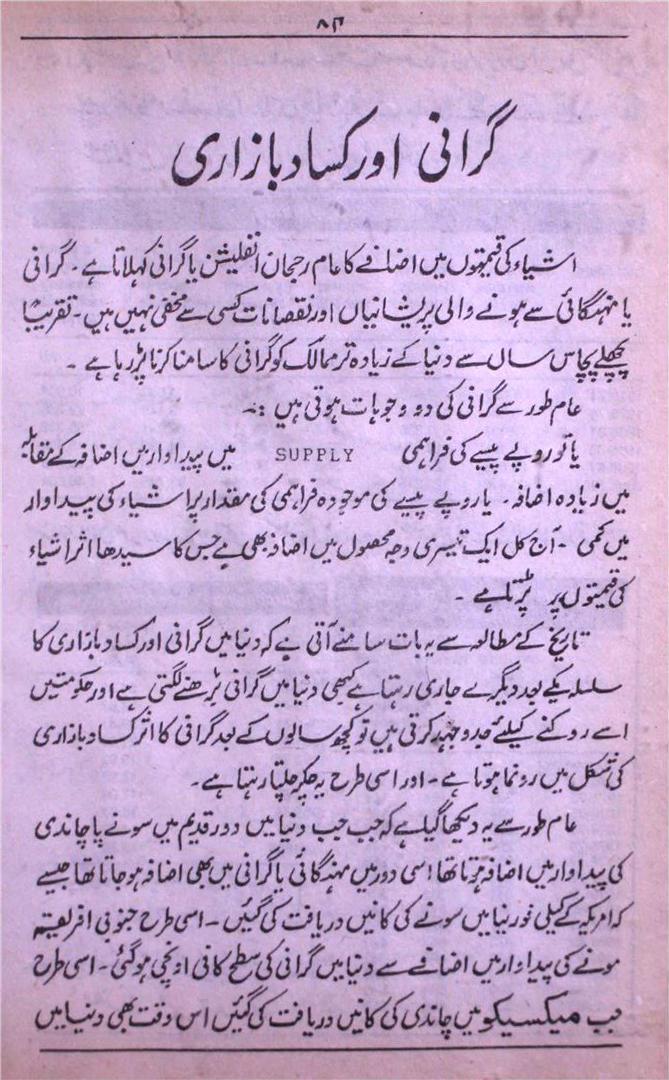 ۸۳
گرانی اور کساد بازاری
اشیاء کی قیمتوں میں اضافے کا عام رجحان انفلیشن یا گرانی کہلاتا ہے۔ گرانی
یا مہنگائی سے ہونے والی پریشانیاں اور نقصانات کسی سے مخفی نہیں ہیں۔ تقریباً
پچھلے پچاس سال سے دنیا کے زیادہ تر ممالک کو گرانی کا سامنا کرنا پڑ رہا ہے۔
عام طور سے گرانی کی دو وجوہات ہوتی ہیں :۔
یا تو روپے پیسے کی فراہمی SUPPLY میں پیداوار میں اضافہ کے مقابلہ
میں زیادہ اضافہ۔ یا روپے پیسے کی موجودہ فراہمی کی مقدار پر اشیاء کی پیداوار
میں کمی ۔ آج کل ایک تیسری وجہ محصول میں اضافہ بھی ہے جس کا سیدھا اثر اشیاء
کی قیمتوں پر پڑتا ہے ۔
تاریخ کے مطالعہ سے یہ بات سامنے آتی ہے کہ دنیا میں گرانی اور کساد بازاری کا
سلسلہ یکے بعد دیگرے جاری رہتا ہے کبھی دنیا میں گرانی بڑھنے لگتی ہے اور حکومتیں
اسے روکنے کیلئے جدوجہد کرتی ہیں تو کچھ سالوں کے بعد گرانی کا اثر کساد بازاری
کی شکل میں رونما ہوتا ہے ۔ اور اسی طرح یہ چکر چلتا رہتا ہے۔
عام طور سے یہ دیکھا گیا ہے کہ جب جب دنیا میں دور قدیم میں سونے یا چاندی
کی پیداوار میں اضافہ ہوتا تھا اسی دور میں مہنگائی یا گرانی میں بھی اضافہ ہو جاتا تھا جیسے
کہ امریکہ کے کیلی فورنیا میں سونے کی کانیں دریافت کی گئیں ۔ اسی طرح جنوبی افریقہ
سونے کی پیداوار میں اضافے سے دنیا میں گرانی کی سطح کافی اونچی ہو گئی ۔ اسی طرح
جب میکسیکو میں چاندی کی کانیں دریافت کی گئیں اس وقت بھی دنیا میں